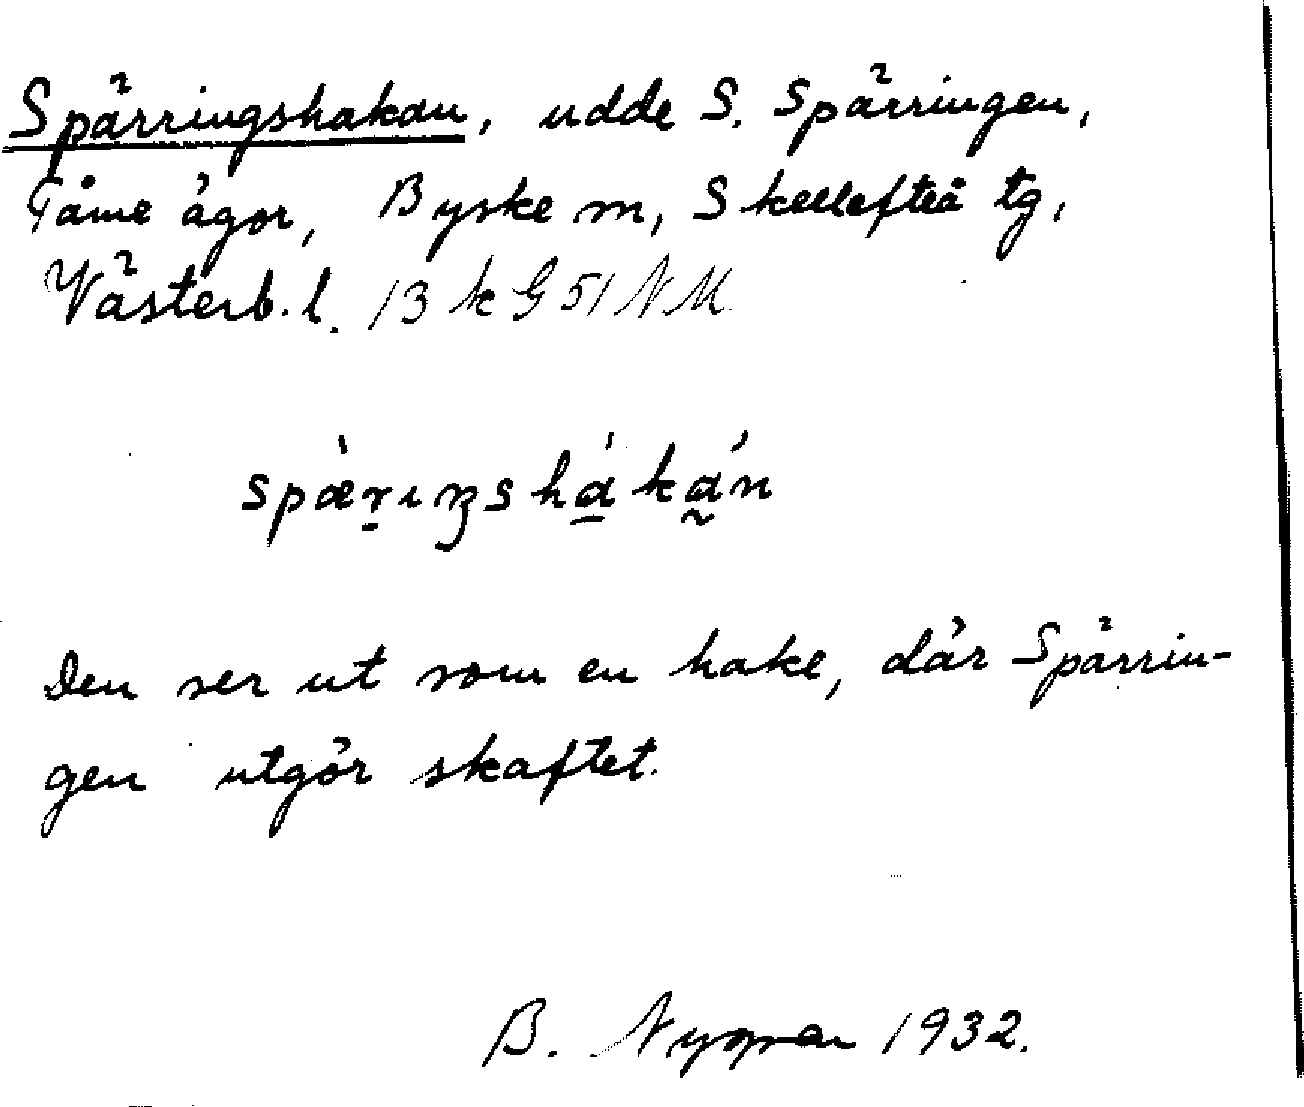 Spärringshakan, udde S. Spärringen,
Tåme ägor, Byske sn, Skellefteå tg,
Västerb. l. 13 k G 51 NM.
spæ̀ṟıŋshákán
Den ser ut som en hake, där Spärrin-
gen utgör skaftet.
B. Nygren 1932.